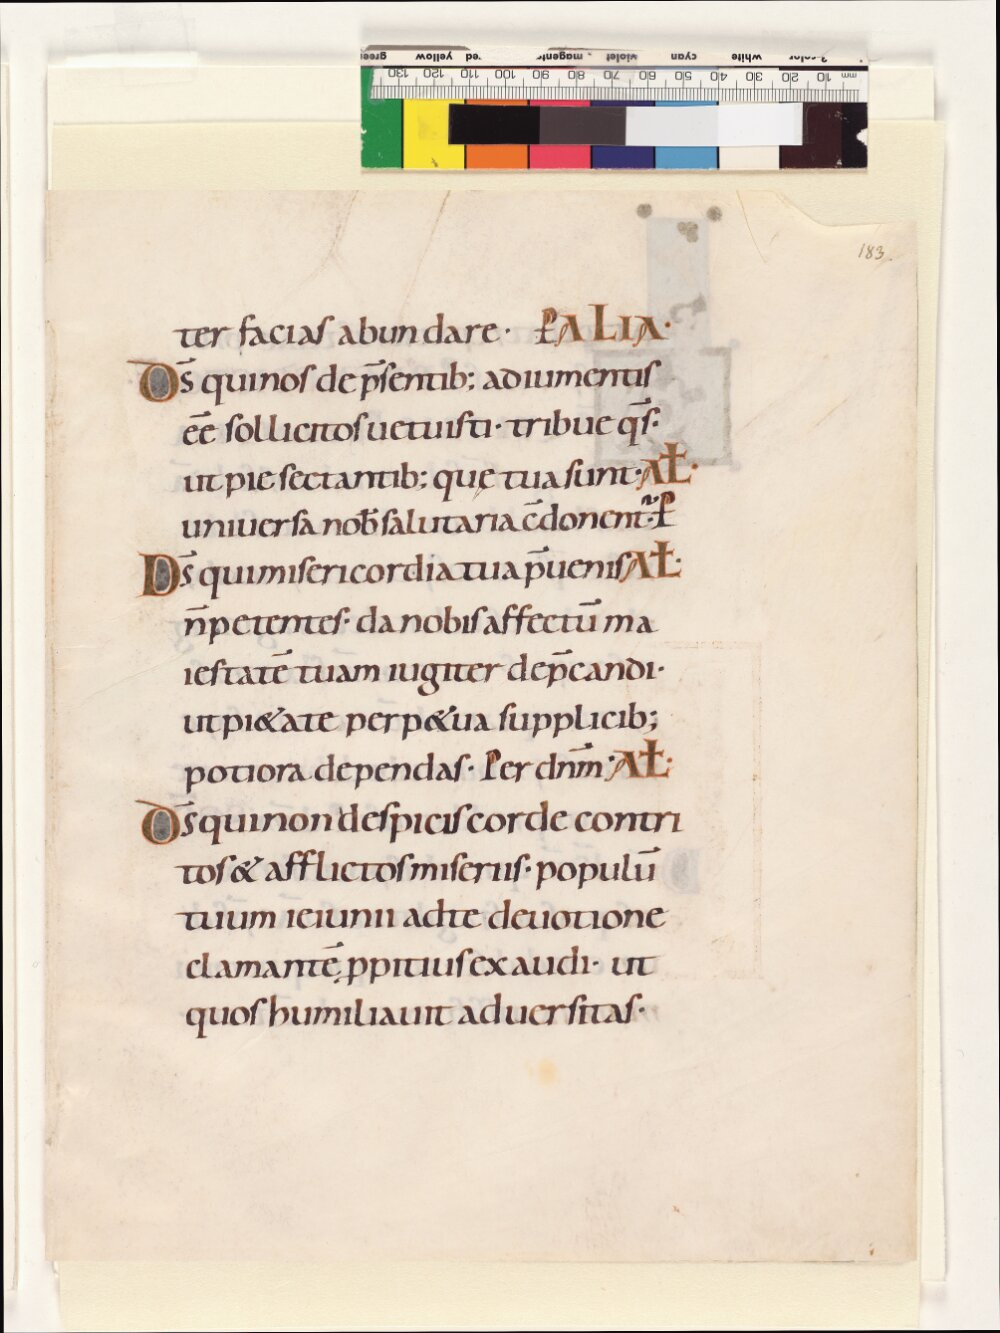 green yellow red magenta violet cyan white 3-color
130 120 110 100 90 80 70 60 50 40 30 20 10 mm
183
ter facias abundare· P̄ALIA·
Ds̄ qui nos de p̄sentib; adiumentis
eē sollicitos uetuisti· tribue qs̄·
ut pie sectantib; quę tua sunt· AŁ·
uniuersa nob̄ salutaria c̄donent᷑· P̄
Ds̄ qui misericordia tua p̄uenis AŁ·
n̄ petentes· da nobis affectū ma
iestatē tuam iugiter dep̄candi·
ut pi&ate perp&ua supplicib;
potiora dependas· Per dnm̄· AŁ·
Ds̄ qui non despicis corde contri
tos & afflictos miseriis· populū
tuum ieiunii ad te deuotione
clamantē, ꝓpitius exaudi· ut
quos humiliauit aduersitas·